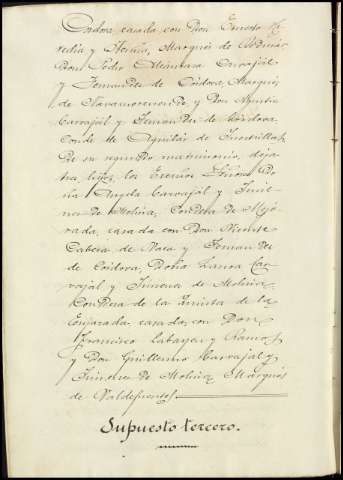 Córdova, casada con Don Ernesto
redia y Acuña, Marqués de
Don Pedro Alcántara Carvajal
y Fernandez de Córdova, Marqués
de Navamorcuende, y Don Agustin
Carvajal y Fernandez de Córdova
Conde de Aguilar de Inestrillas
De su segundo matrimonio, deja
tra, hijos, los Excmos. Señores Do
ña Angela Carvajal y Jime-
nez de Molina, Condesa de Mejo-
rada, casada con Don Vicente
Cabeza de Vaca y Fernandez
de Córdova, Doña Laura Car
vajal y Jimenez de Molina
Condesa de la Quinta de la
Enjarada, casada con Don
Francisco Labayen y Ramos
y Don Guillermo Carvajal y
Jimenez de Molina Marqués
de Valdefuentes.
Supuesto tercero.